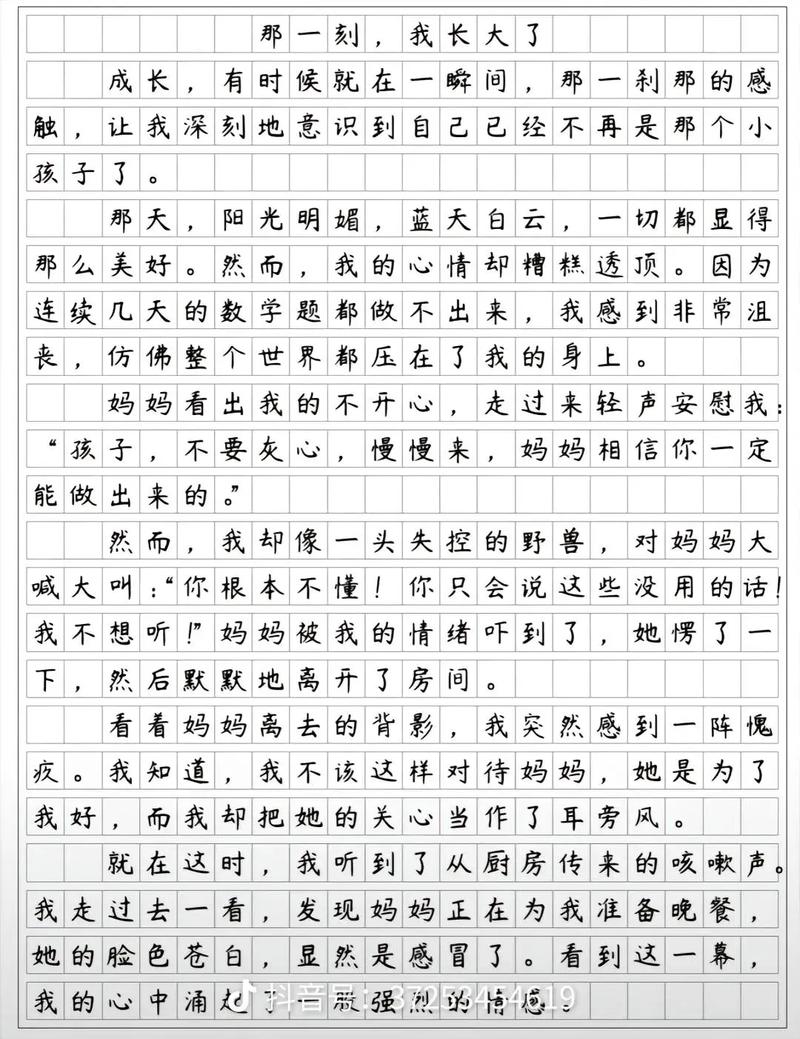 那一刻，我长大了
成长，有时候就在一瞬间，那一刹那的感
触，让我深刻地意识到自己已经不再是那个小
孩子了。
那天，阳光明媚，蓝天白云，一切都显得
那么美好。然而，我的心情却糟糕透顶。因为
连续几天的数学题都做不出来，我感到非常沮
丧，仿佛整个世界都压在了我的身上。
妈妈看出我的不开心，走过来轻声安慰我：
“孩子，不要灰心，慢慢来，妈妈相信你一定
能做出来的。”
然而，我却像一头失控的野兽，对妈妈大
喊大叫：“你根本不懂！你只会说这些没用的话！
我不想听！”妈妈被我的情绪吓到了，她愣了一
下，然后默默地离开了房间。
看着妈妈离去的背影，我突然感到一阵愧
疚。我知道，我不该这样对待妈妈，她是为了
我好，而我却把她的关心当作了耳旁风。
就在这时，我听到了从厨房传来的咳嗽声。
我走过去一看，发现妈妈正在为我准备晚餐，
她的脸色苍白，显然是感冒了。看到这一幕，
我的心中涌起了一股强烈的情感。
抖音号：37253454619